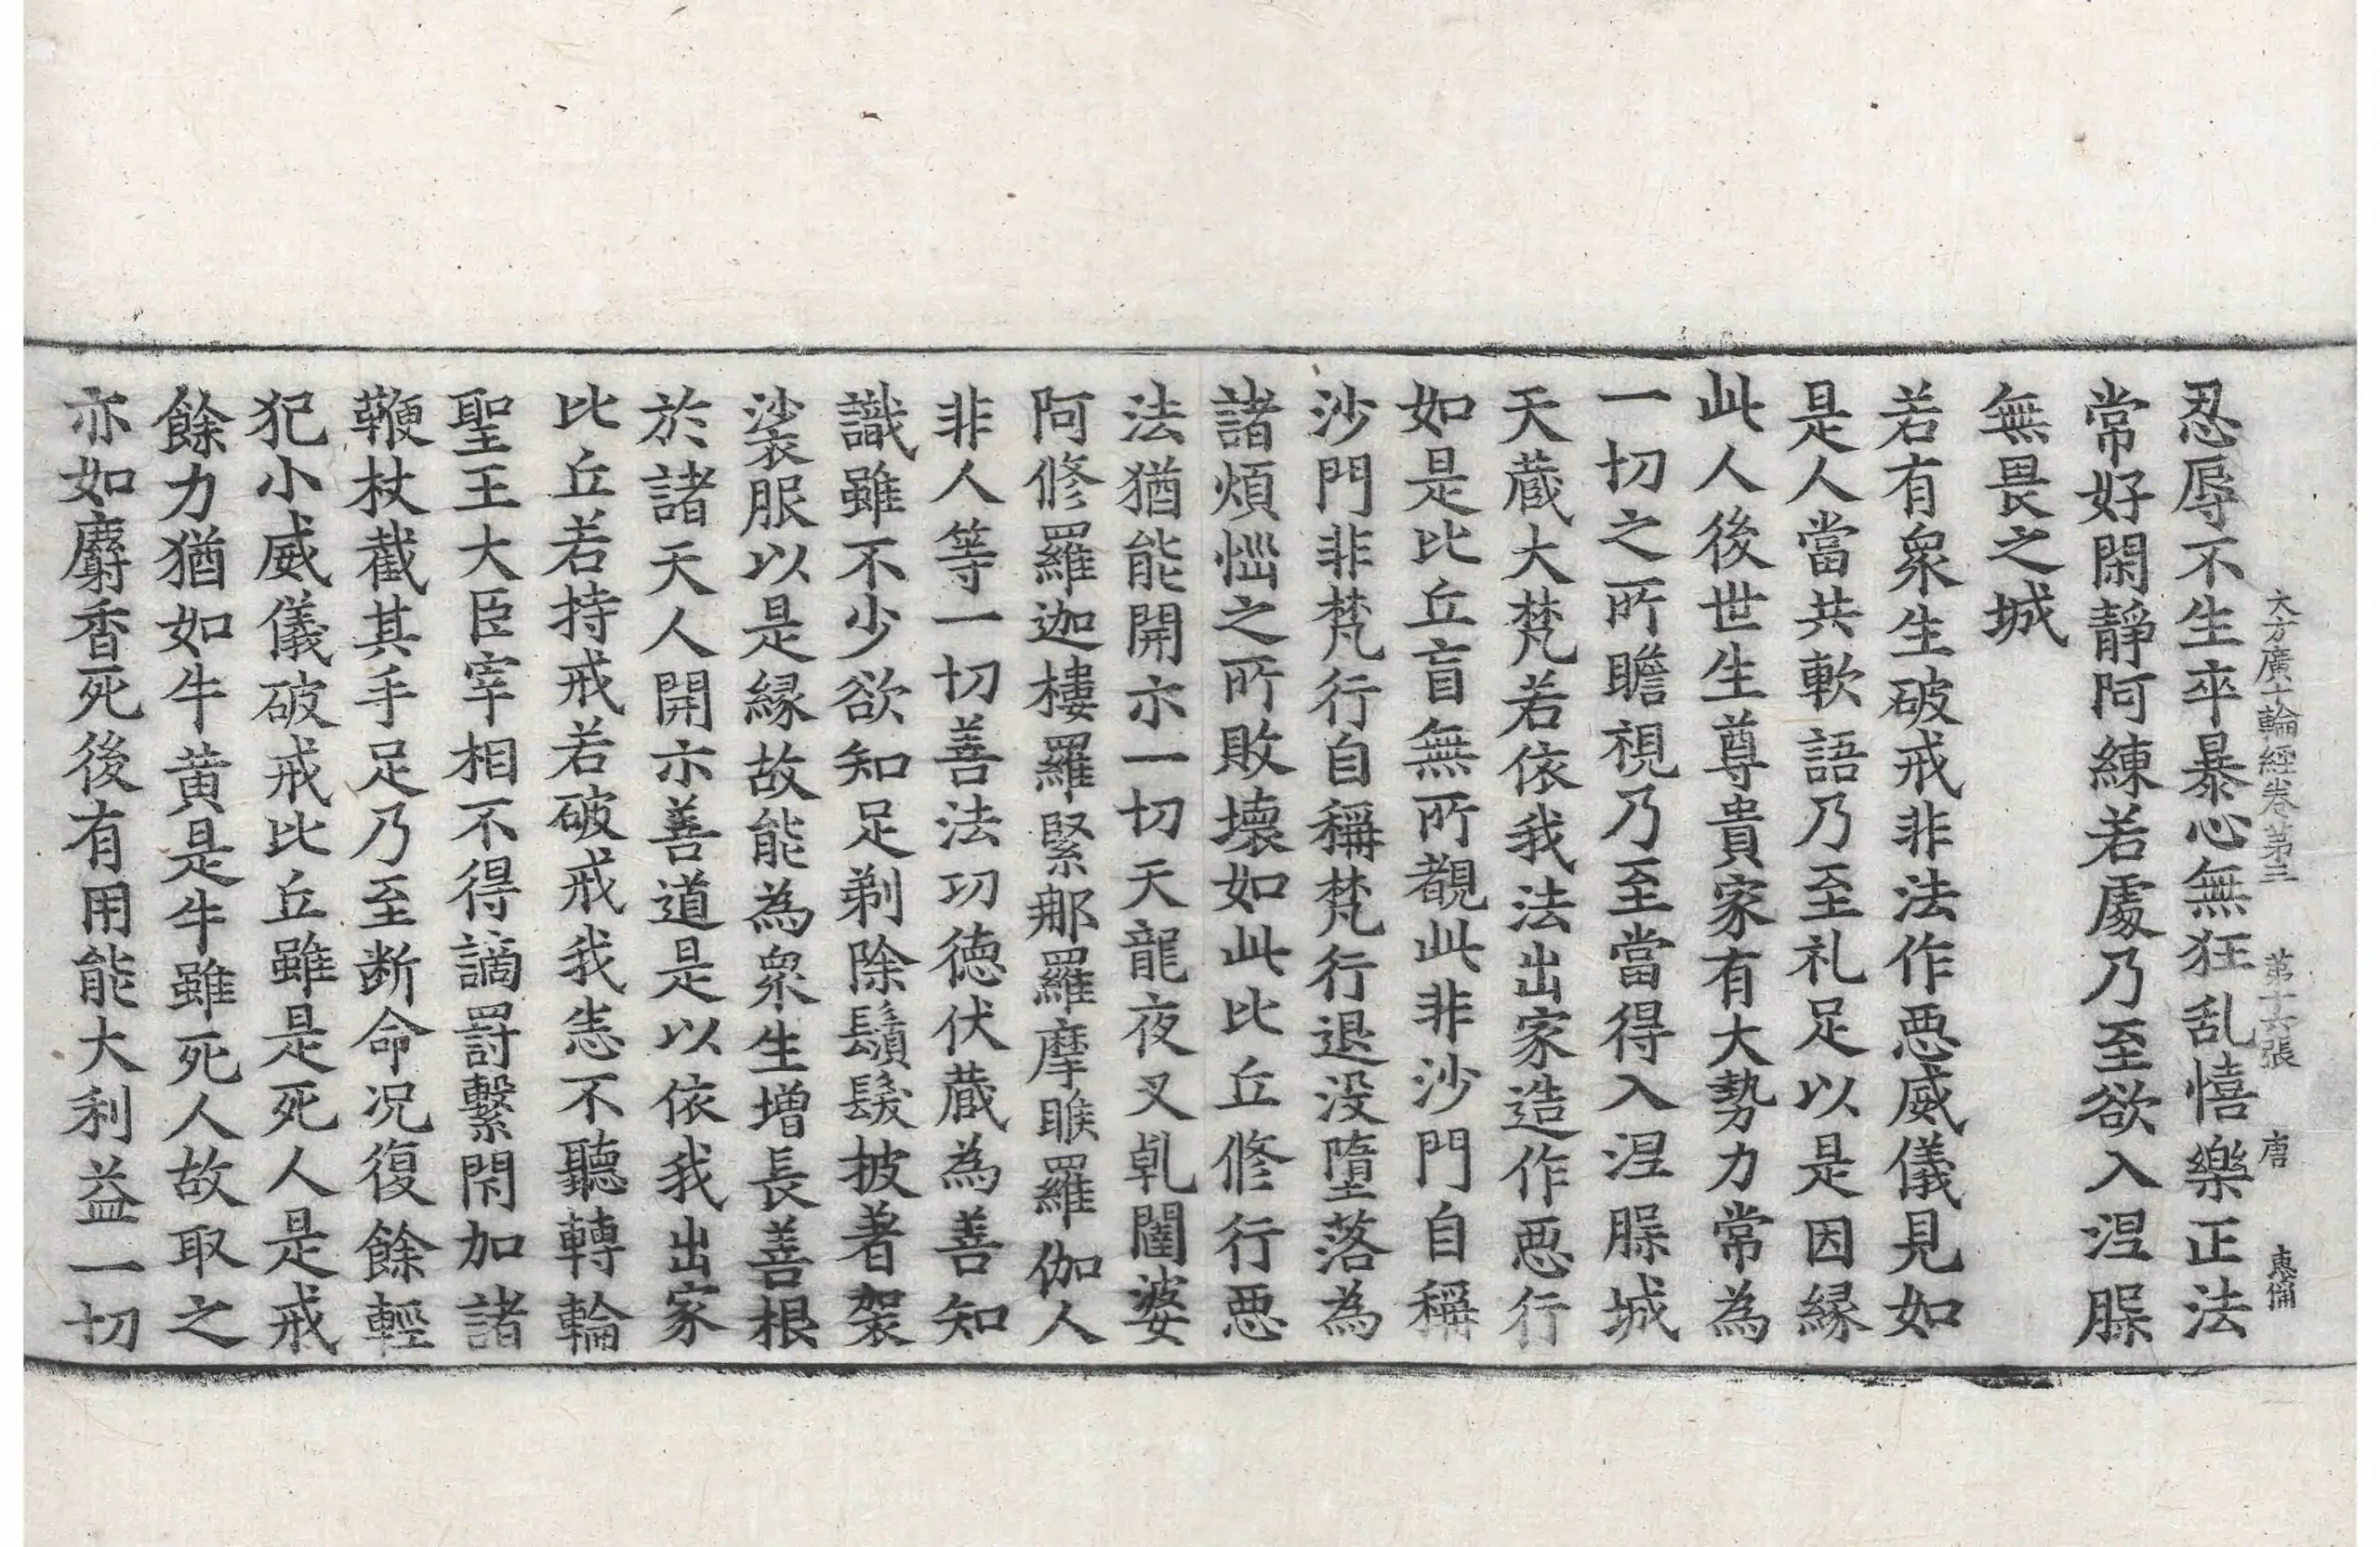 大方廣十輪經卷第三　第十六張　唐　惠備
忍辱不生卒暴心無狂乱憘樂正法
常好閑靜阿練若處乃至欲入涅槃
無畏之城
若有衆生破戒非法作惡威儀見如
是人當共軟語乃至礼足以是因縁
此人後世生尊貴家有大勢力常為
一切之所瞻視乃至當得入涅槃城
天蔵大梵若依我法出家造作惡行
如是比丘盲無所覩此非沙門自稱
沙門非梵行自稱梵行退没墮落為
諸煩惱之所敗壞如此比丘修行惡
法猶能開示一切天龍夜叉乹闥婆
阿修羅迦樓羅緊那羅摩睺羅伽人
非人等一切善法功德伏蔵為善知
識雖不少欲知足剃除鬚髮披著袈
裟服以是縁故能為衆生增長善根
於諸天人開示善道是以依我出家
比丘若持戒若破戒我悉不聽轉輪
聖王大臣宰相不得謫罸繫閇加諸
鞭杖截其手足乃至断命况復餘輕
犯小威儀破戒比丘雖是死人是戒
餘力猶如牛黄是牛雖死人故取之
亦如麝香死後有用能大利益一切